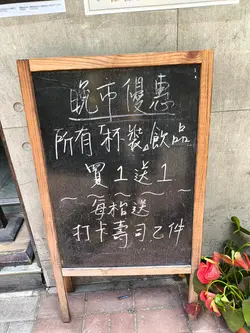 晚市優惠
所有杯裝飲品
買1送1
~每枱送~
打卡壽司乙件